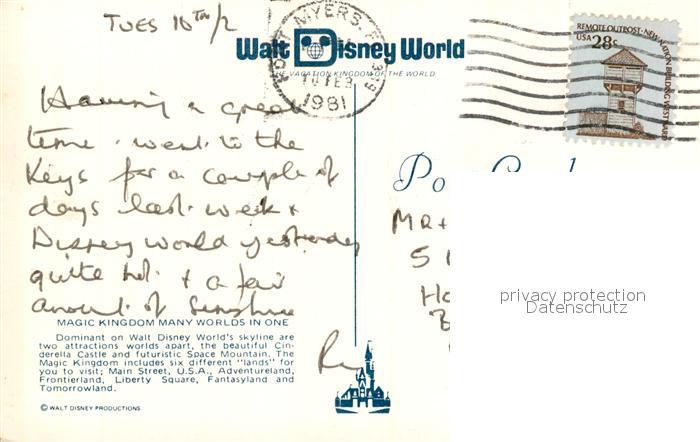 TUES 10TH/2
FORT MYERS, FL 339
10 FEB
1981
REMOTE OUTPOST · NEW NATION BUILDING WESTWARD
USA 28c
Walt Disney World
THE VACATION KINGDOM OF THE WORLD
Having a great
time. went to the
Keys for a couple of
days last week +
Disney World yesterday
quite hot. + a fair
amount of sunshine
Po
MR +
5
Ho
MAGIC KINGDOM MANY WORLDS IN ONE
Dominant on Walt Disney World's skyline are
two attractions worlds apart, the beautiful Cin-
derella Castle and futuristic Space Mountain. The
Magic Kingdom includes six different "lands" for
you to visit; Main Street, U.S.A., Adventureland,
Frontierland, Liberty Square, Fantasyland and
Tomorrowland.
© WALT DISNEY PRODUCTIONS
privacy protection
Datenschutz